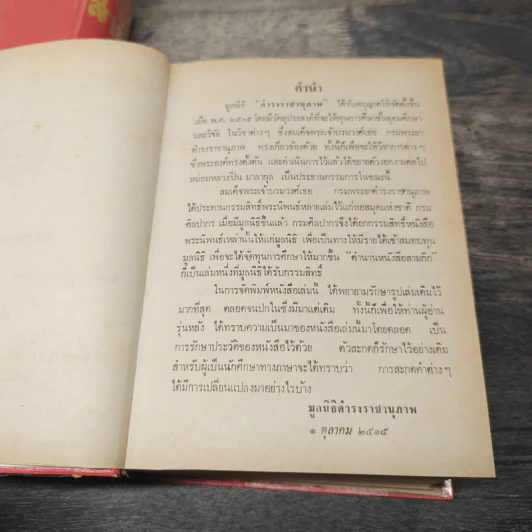 คำนำ
มูลนิธิ "ดำรงราชานุภาพ" ได้รับอนุญาตให้จัดตั้งขึ้น
เมื่อ พ.ศ. ๒๔๙๕ โดยมีวัตถุประสงค์ที่จะให้ทุนการศึกษาชั้นอุดมศึกษา
และวิจัย ในวิชาต่างๆ ซึ่งสมเด็จพระเจ้าบรมวงศ์เธอ กรมพระยา
ดำรงราชานุภาพ ทรงเกี่ยวข้องด้วย ทั้งนี้ก็เพื่อจะให้วิชาการต่างๆ
ซึ่งพระองค์ทรงตั้งต้น และดำเนินการไว้แล้วได้ขยายตัวงอกงามต่อไป
หม่อมหลวงปิ่น มาลากุล เป็นประธานกรรมการในขณะนี้
สมเด็จพระเจ้าบรมวงศ์เธอ กรมพระยาดำรงราชานุภาพ
ได้ประทานกรรมสิทธิ์พระนิพนธ์หลายเล่มไว้แก่หอสมุดแห่งชาติ กรม
ศิลปากร เมื่อมีมูลนิธิขึ้นแล้ว กรมศิลปากรจึงได้ยกกรรมสิทธิ์หนังสือ
พระนิพนธ์เหล่านั้นให้แก่มูลนิธิ เพื่อเป็นทางให้มีรายได้เข้าสมทบทุน
มูลนิธิ เพื่อจะได้จัดทุนการศึกษาให้มากขึ้น "ตำนานหนังสือสามก๊ก"
ก็เป็นเล่มหนึ่งที่มูลนิธิได้รับกรรมสิทธิ์
ในการจัดพิมพ์หนังสือเล่มนี้ ได้พยายามรักษารูปเล่มเดิมไว้
มากที่สุด ตลอดจนปกในซึ่งมีมาแต่เดิม ทั้งนี้ก็เพื่อให้ท่านผู้อ่าน
รุ่นหลัง ได้ทราบความเป็นมาของหนังสือเล่มนี้มาโดยตลอด เป็น
การรักษาประวัติของหนังสือไว้ด้วย ตัวสะกดก็รักษาไว้อย่างเดิม
สำหรับผู้เป็นนักศึกษาทางภาษาจะได้ทราบว่า การสะกดคำต่างๆ
ได้มีการเปลี่ยนแปลงมาอย่างไรบ้าง
มูลนิธิดำรงราชานุภาพ
๑ ตุลาคม ๒๕๑๕